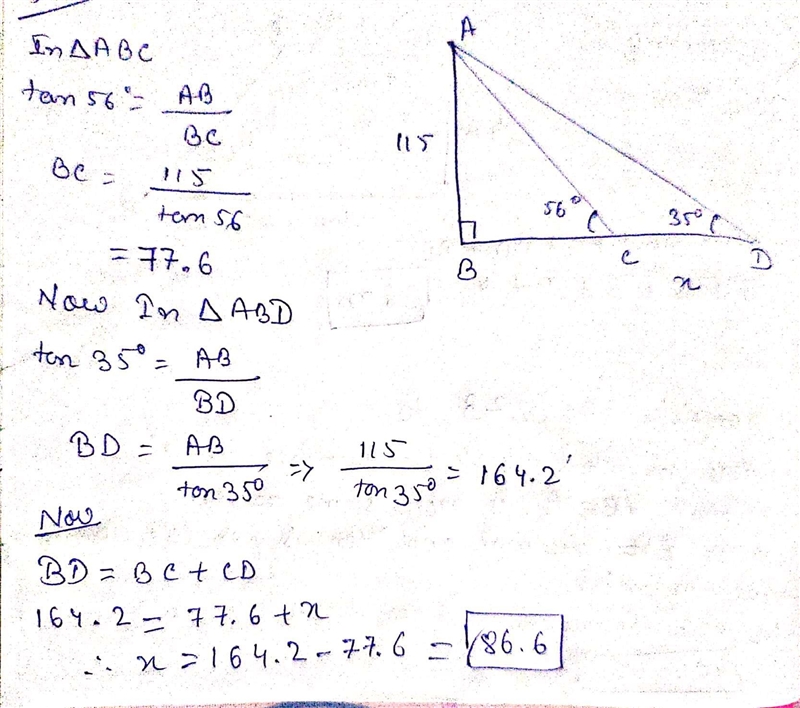 In △ABC
tan 56° = AB / BC
BC = 115 / tan 56
= 77.6
Now In △ABD
tan 35° = AB / BD
BD = AB / tan 35° => 115 / tan 35° = 164.2'
Now
BD = BC + CD
164.2 = 77.6 + x
∴ x = 164.2 - 77.6 = 86.6
A
115
56°
35°
B
C
D
x